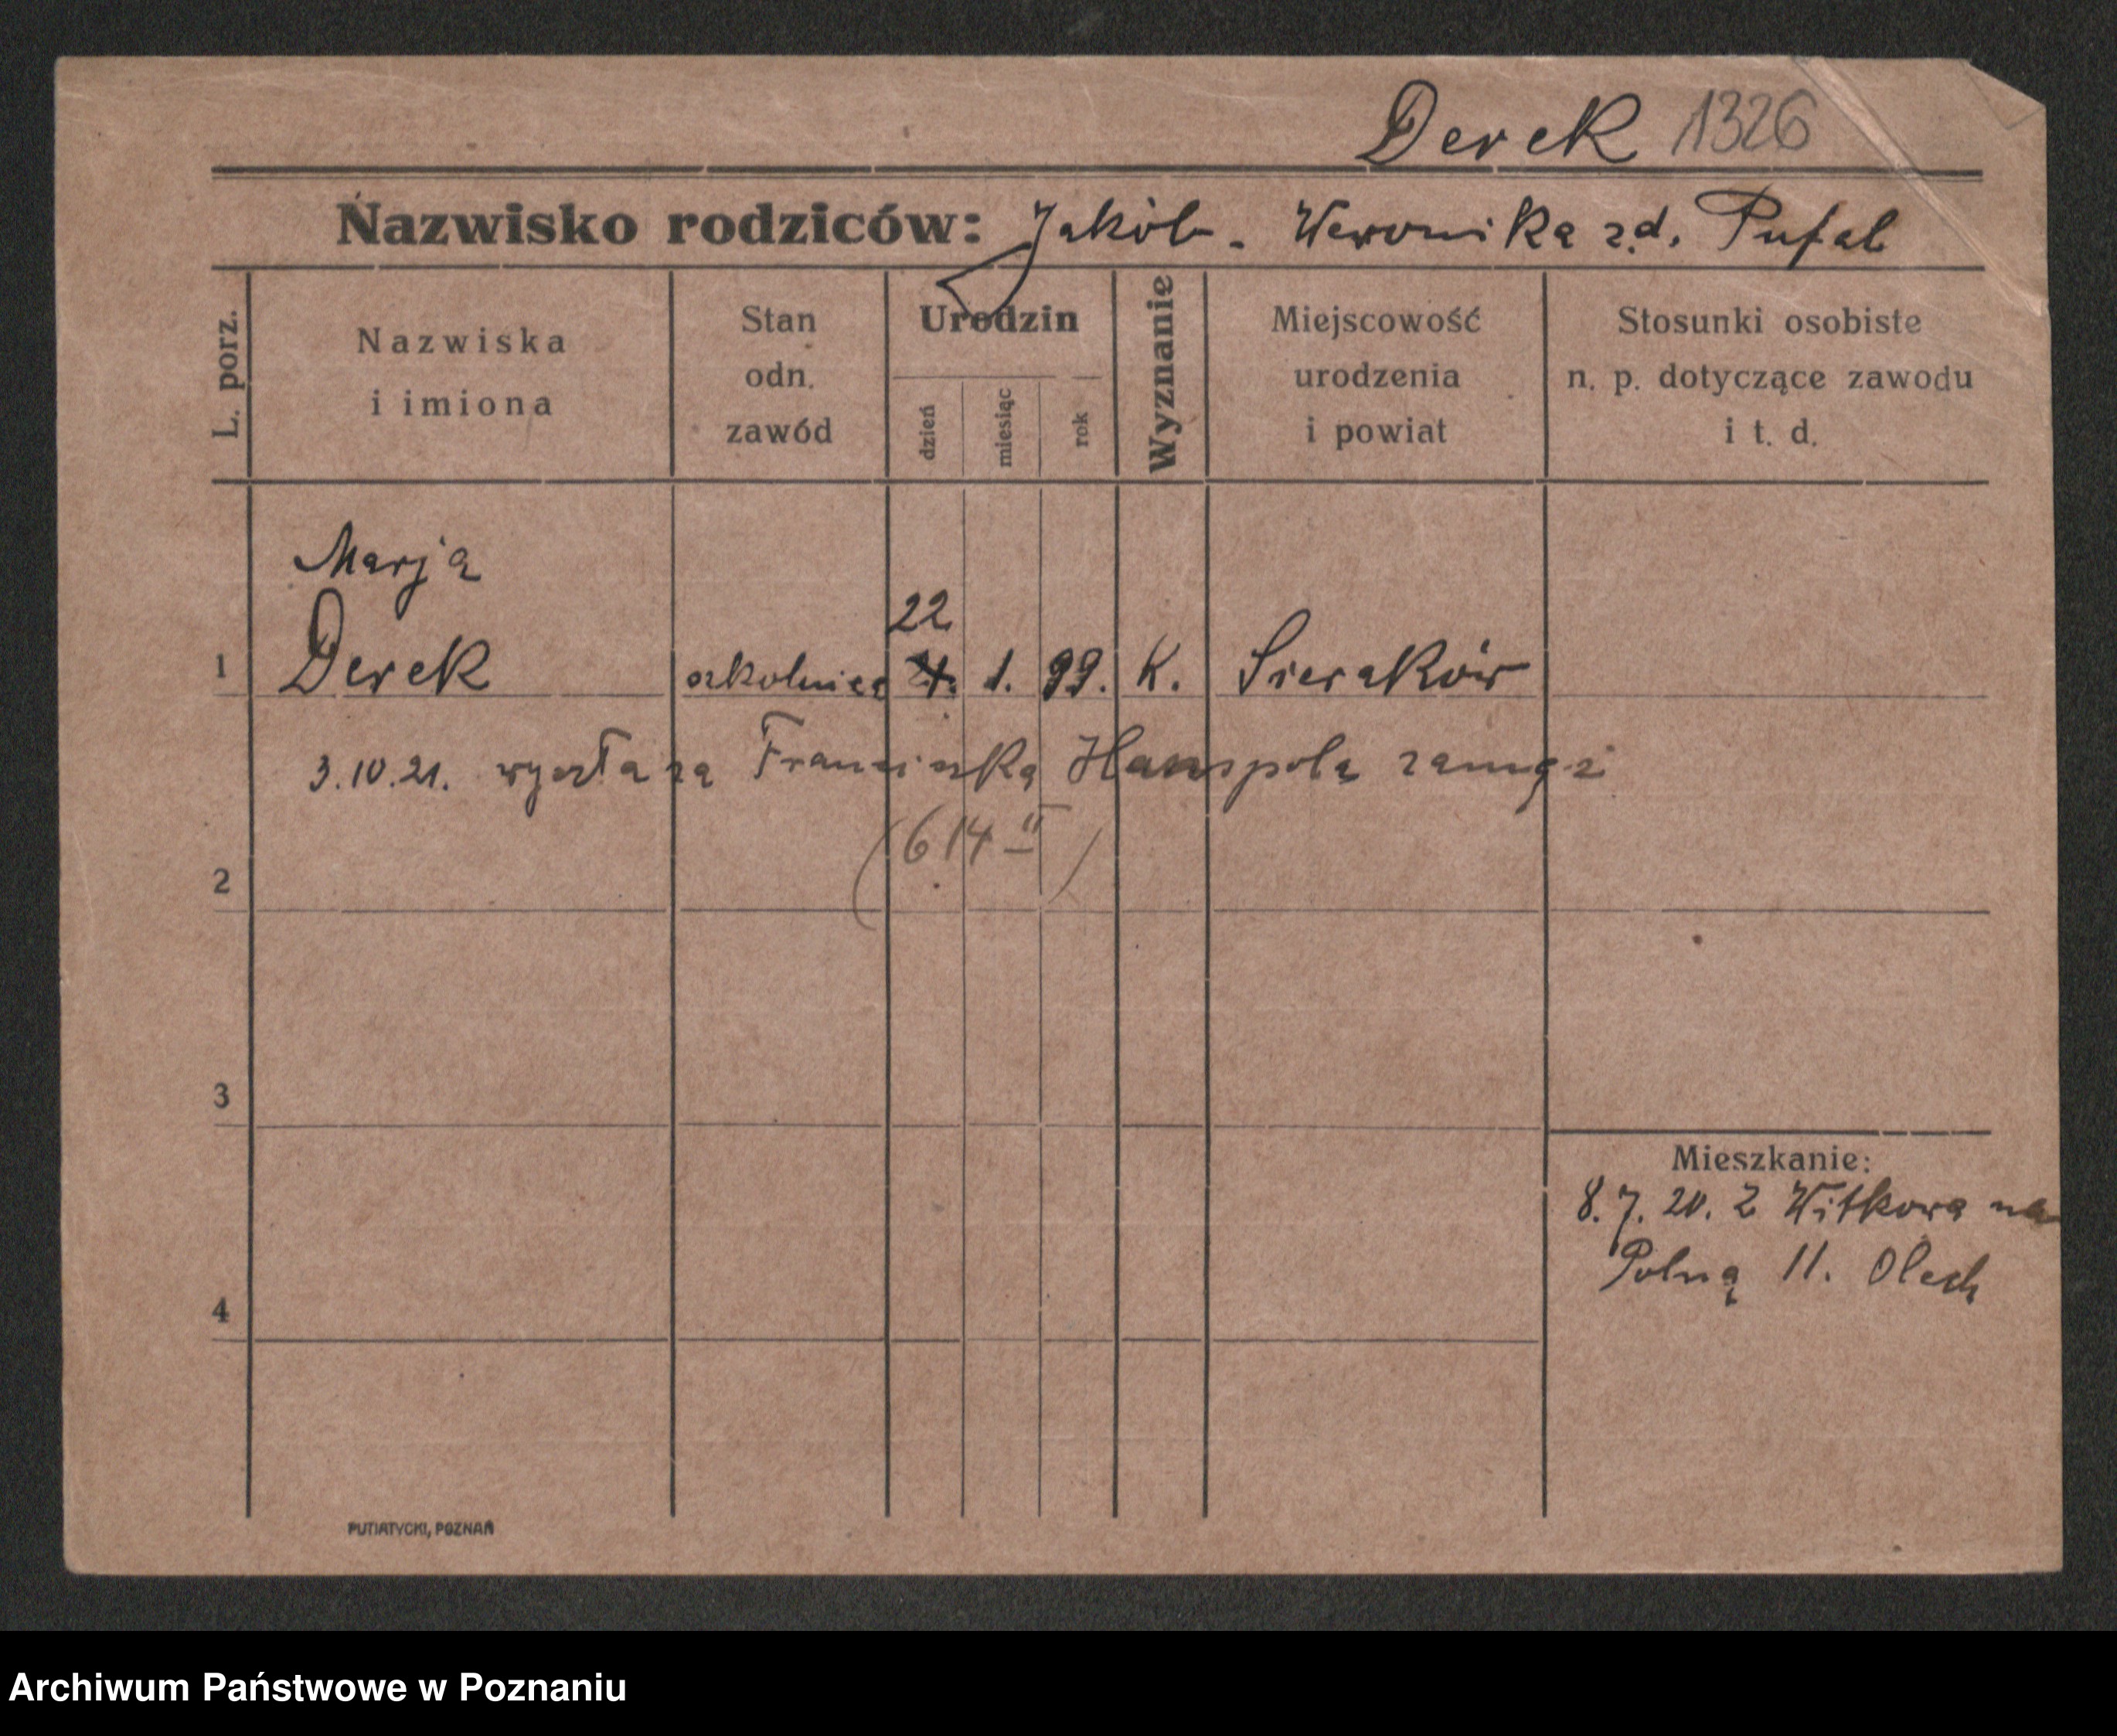 Derek 1326
Nazwisko rodziców: Jakób - Weronika zd. Pufal
L. porz.
Nazwiska
i imiona
Stan
odn.
zawód
Urodzin
dzień
miesiąc
rok
Wyznanie
Miejscowość
urodzenia
i powiat
Stosunki osobiste
n. p. dotyczące zawodu
i t. d.
Marja
22
1 Derek 1. 99. K. Sieraków
3.10.21. wyszła za Franciszka zamąż
(614 II)
2
3
Mieszkanie:
8. 7. 20. Z Witkowa na
Polną 11. Olech
4
PUTIATYCKI, POZNAŃ
Archiwum Państwowe w Poznaniu